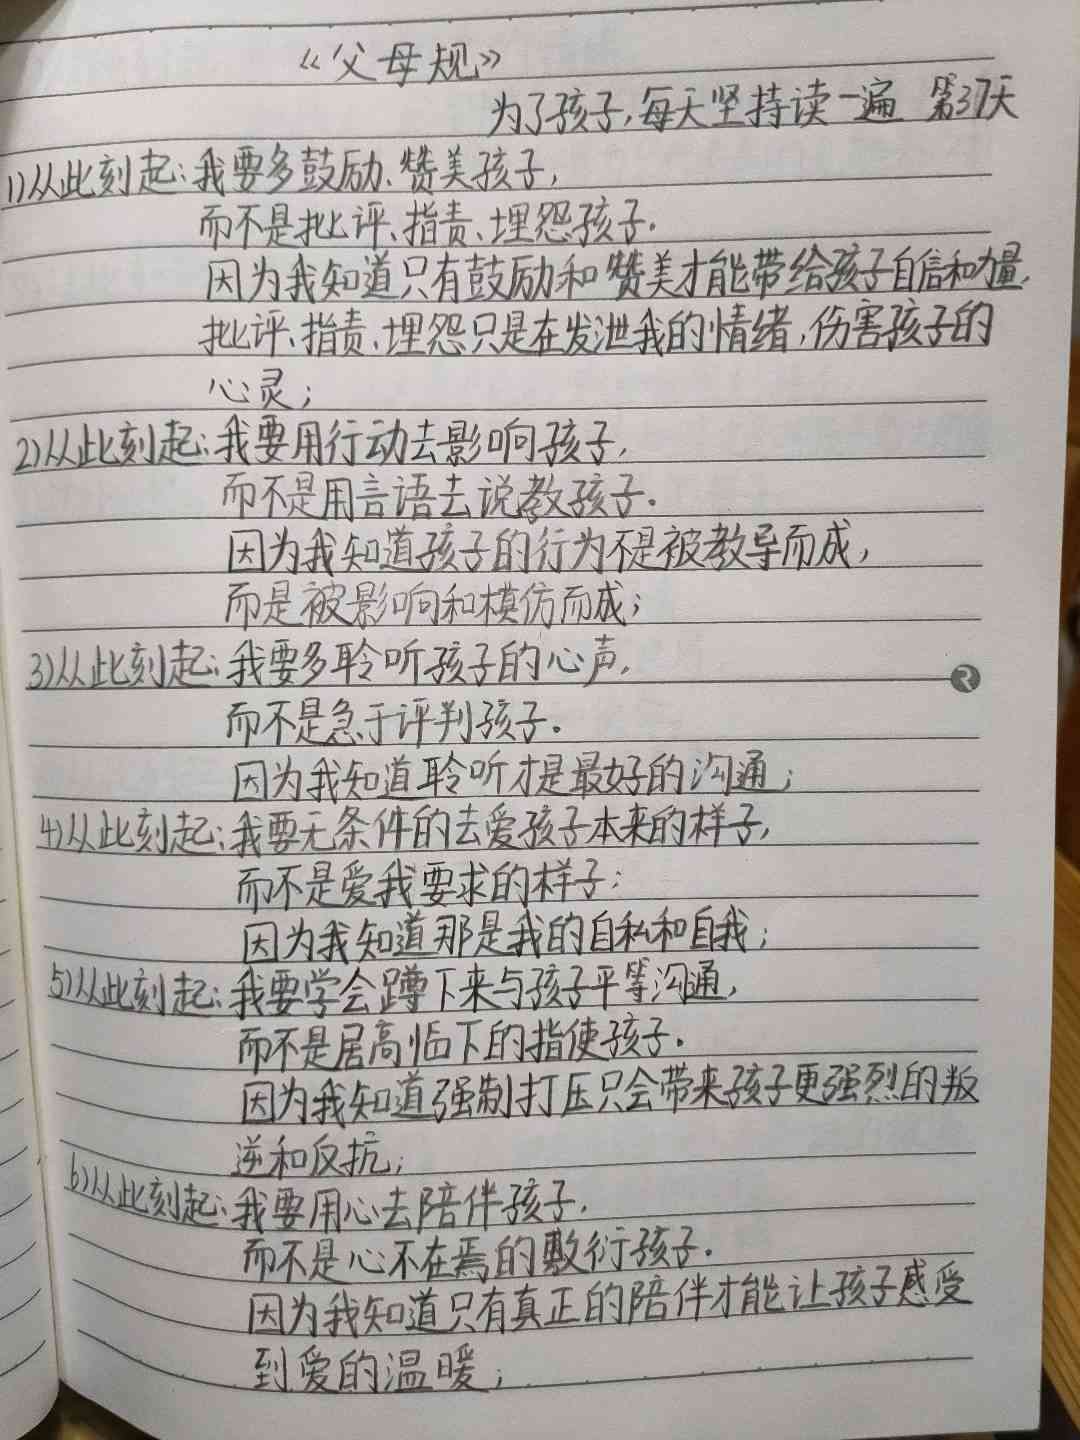 《父母规》
为了孩子,每天坚持读一遍 第37天
1)从此刻起:我要多鼓励、赞美孩子,
而不是批评、指责、埋怨孩子.
因为我知道只有鼓励和赞美才能带给孩子自信和力量,
批评、指责、埋怨只是在发泄我的情绪,伤害孩子的
心灵;
2)从此刻起:我要用行动去影响孩子,
而不是用言语去说教孩子.
因为我知道孩子的行为不是被教导而成,
而是被影响和模仿而成;
3)从此刻起:我要多聆听孩子的心声,
而不是急于评判孩子.
因为我知道聆听才是最好的沟通;
4)从此刻起:我要无条件的去爱孩子本来的样子,
而不是爱我要求的样子;
因为我知道那是我的自私和自我;
5)从此刻起:我要学会蹲下来与孩子平等沟通,
而不是居高临下的指使孩子.
因为我知道强制打压只会带来孩子更强烈的叛
逆和反抗;
6)从此刻起:我要用心去陪伴孩子,
而不是心不在焉的敷衍孩子.
因为我知道只有真正的陪伴才能让孩子感受
到爱的温暖;